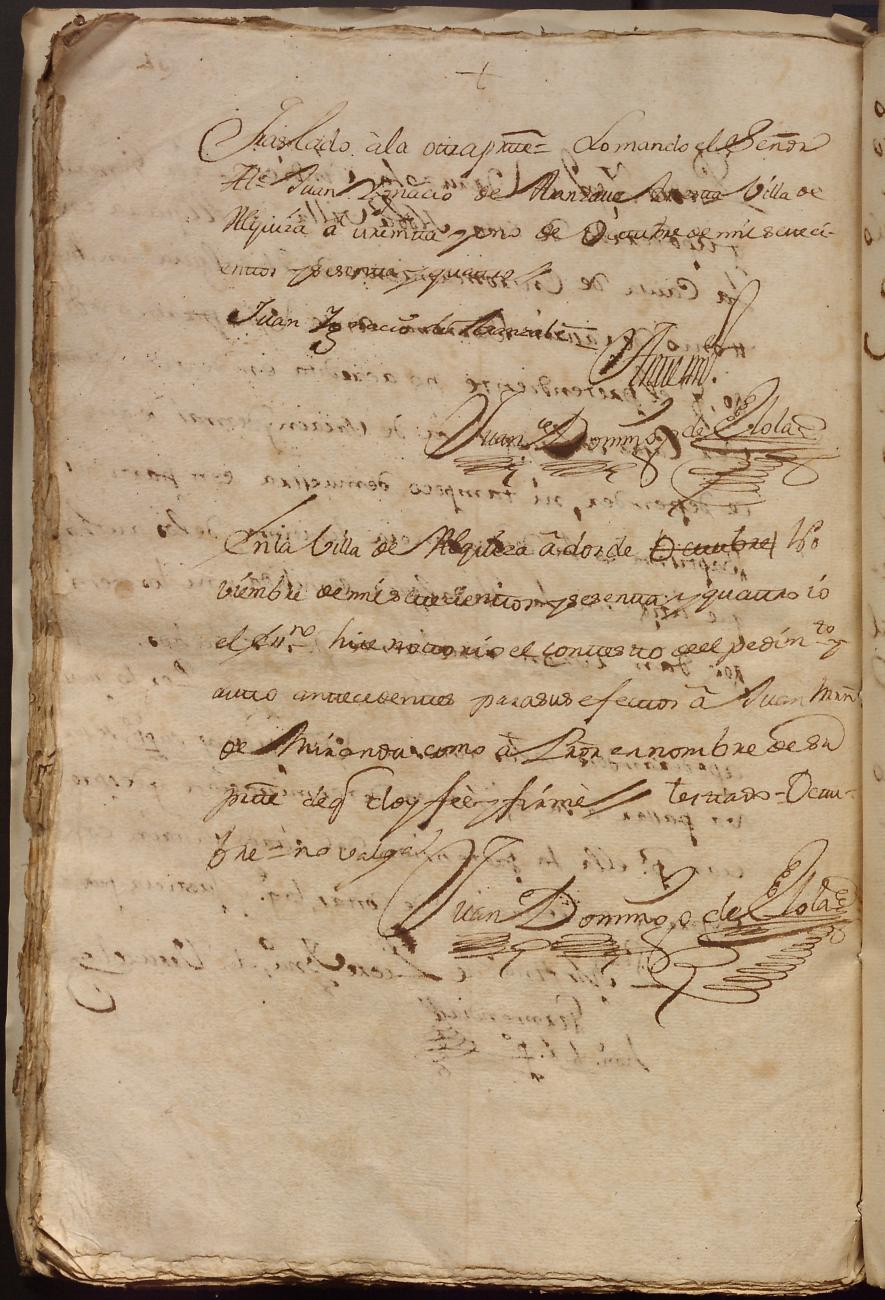 Traslado à la otra p.te = Lo mando el Señor
Al.e Juan Ignacio de en esta Villa de
Alquiza â treinta y uno de Octubre de mil seteci-
entos y sesenta y quatro //
Juan Ignacio de
Ante mi
Juan Domingo de Olola
En la Villa de Alquiza â dos de Octubre No
viembre de mil setecientos y sesenta y quatro io
el ess.no hice notorio el contexto de el pedim.to y
auto antecedentes para sus efectos â Juan Mrn
de Miranda como â Pror en nombre de su
p.te de q doy feè y firmè // testado = Octu-
bre = no valga
Juan Domingo de Olola